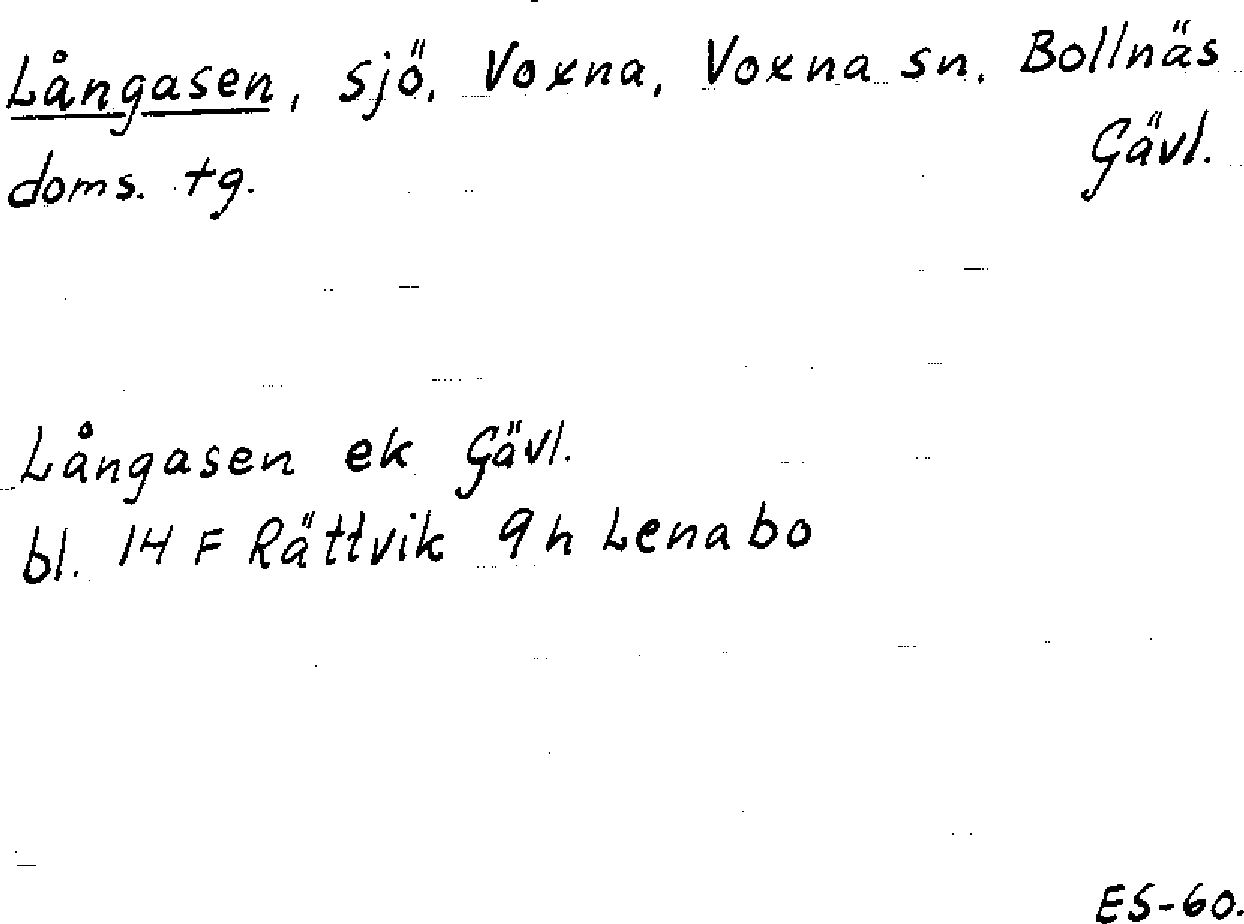 Långasen, sjö. Voxna, Voxna sn. Bollnäs
doms. tg. Gävl.
Långasen ek Gävl.
bl. 14 F Rättvik 9h Lenabo
ES-60.